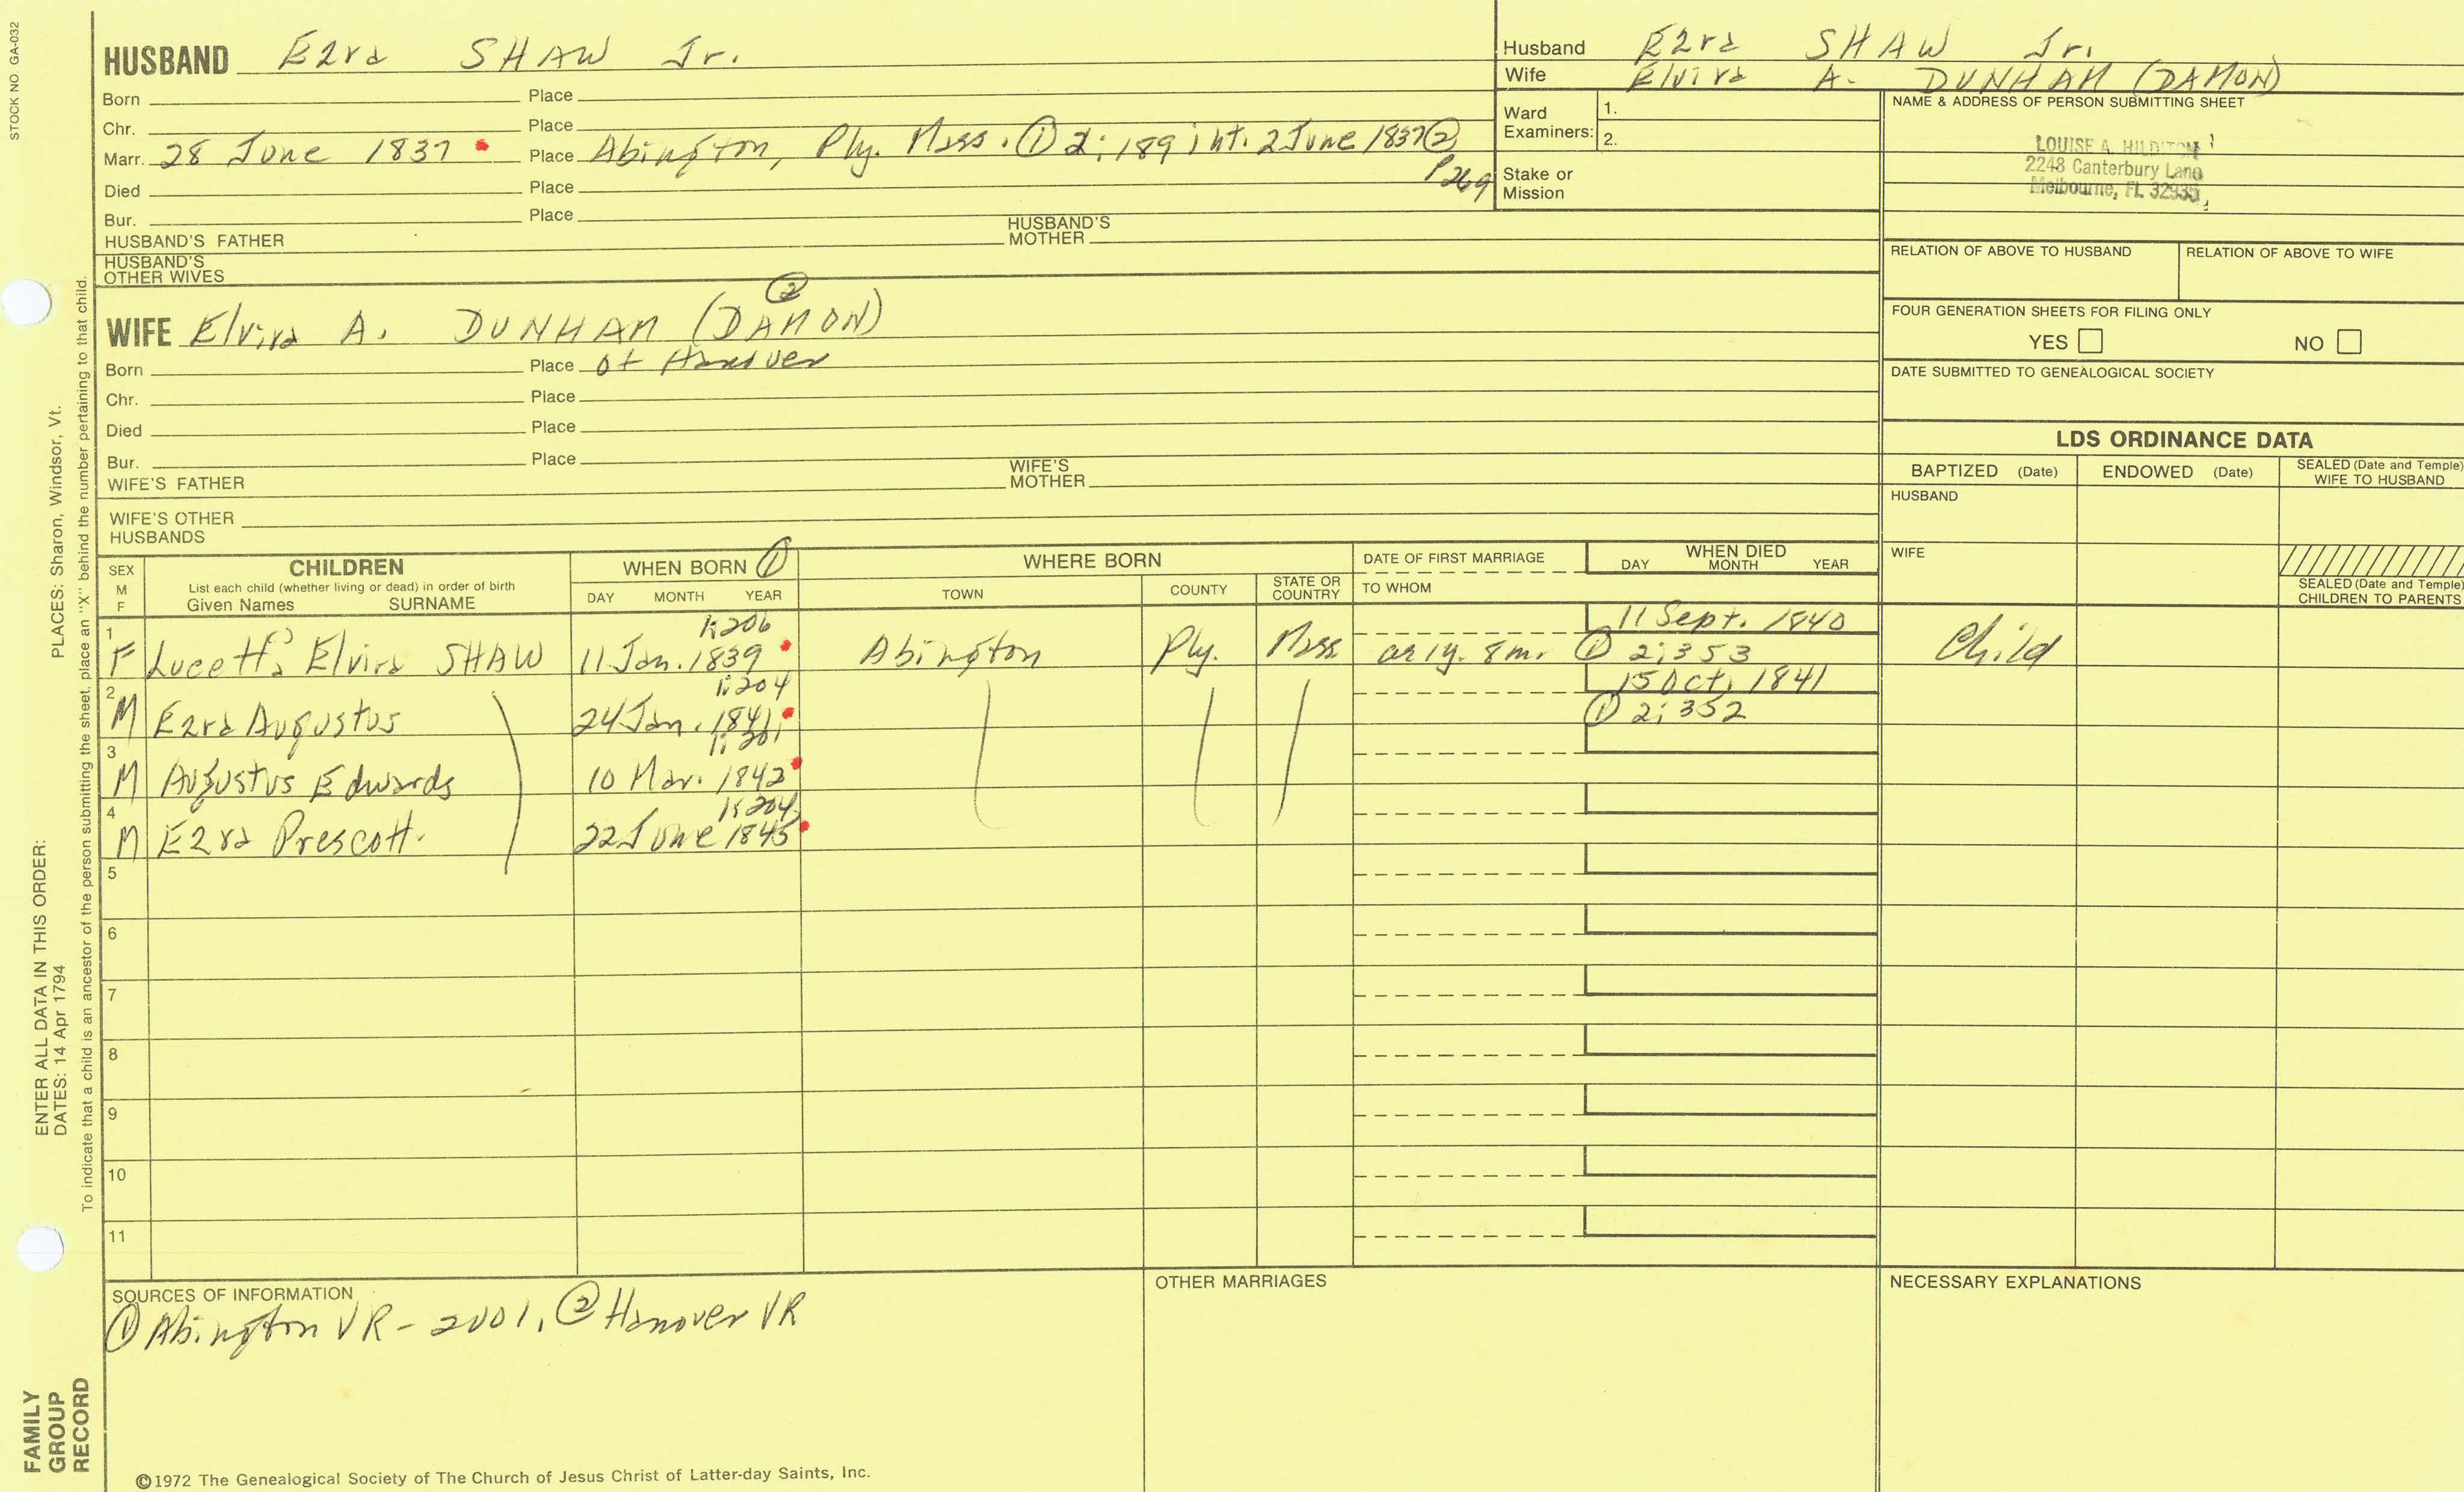 STOCK NO. GA-032
HUSBAND Ezra SHAW Jr.
Born Place
Chr. Place
Marr. 28 June 1837 Place Abington, Ply. Mass. ① 2:189 int. 2 June 1837 ②
P269
Died Place
Bur. Place
HUSBAND'S FATHER HUSBAND'S MOTHER
HUSBAND'S OTHER WIVES
Husband Ezra SHAW Jr.
Wife Elvira A. DUNHAM (DAMON)
Ward Examiners: 1.
2.
Stake or Mission
NAME & ADDRESS OF PERSON SUBMITTING SHEET
LOUISE A. HILDITCH
2248 Canterbury Lane
Melbourne, FL 32935
RELATION OF ABOVE TO HUSBAND RELATION OF ABOVE TO WIFE
FOUR GENERATION SHEETS FOR FILING ONLY
YES NO
DATE SUBMITTED TO GENEALOGICAL SOCIETY
②
WIFE Elvira A. DUNHAM (DAMON)
Born Place of Hanover
Chr. Place
Died Place
Bur. Place
WIFE'S FATHER WIFE'S MOTHER
WIFE'S OTHER HUSBANDS
LDS ORDINANCE DATA
BAPTIZED (Date) ENDOWED (Date) SEALED (Date and Temple) WIFE TO HUSBAND
HUSBAND
WIFE
SEALED (Date and Temple) CHILDREN TO PARENTS
SEX M F
CHILDREN
List each child (whether living or dead) in order of birth
Given Names SURNAME
WHEN BORN ①
DAY MONTH YEAR
WHERE BORN
TOWN COUNTY STATE OR COUNTRY
DATE OF FIRST MARRIAGE
TO WHOM
WHEN DIED
DAY MONTH YEAR
1:206 11 Sept. 1840
1 F Lucetta Elvira SHAW 11 Jan. 1839 Abington Ply. Mass. ae 1y. 8m. ① 2:353 Child
1:204 15 Oct. 1841
2 M Ezra Augustus 24 Jan. 1841 ① 2:352
1:201
3 M Augustus Edwards 10 Mar. 1842
1:204
4 M Ezra Prescott. 22 June 1845
5
6
7
8
9
10
11
SOURCES OF INFORMATION
① Abington VR - 2001, ② Hanover VR
OTHER MARRIAGES
NECESSARY EXPLANATIONS
©1972 The Genealogical Society of The Church of Jesus Christ of Latter-day Saints, Inc.
FAMILY GROUP RECORD
ENTER ALL DATA IN THIS ORDER:
DATES: 14 Apr 1794
PLACES: Sharon, Windsor, Vt.
To indicate that a child is an ancestor of the person submitting the sheet, place an "X" behind the number pertaining to that child.